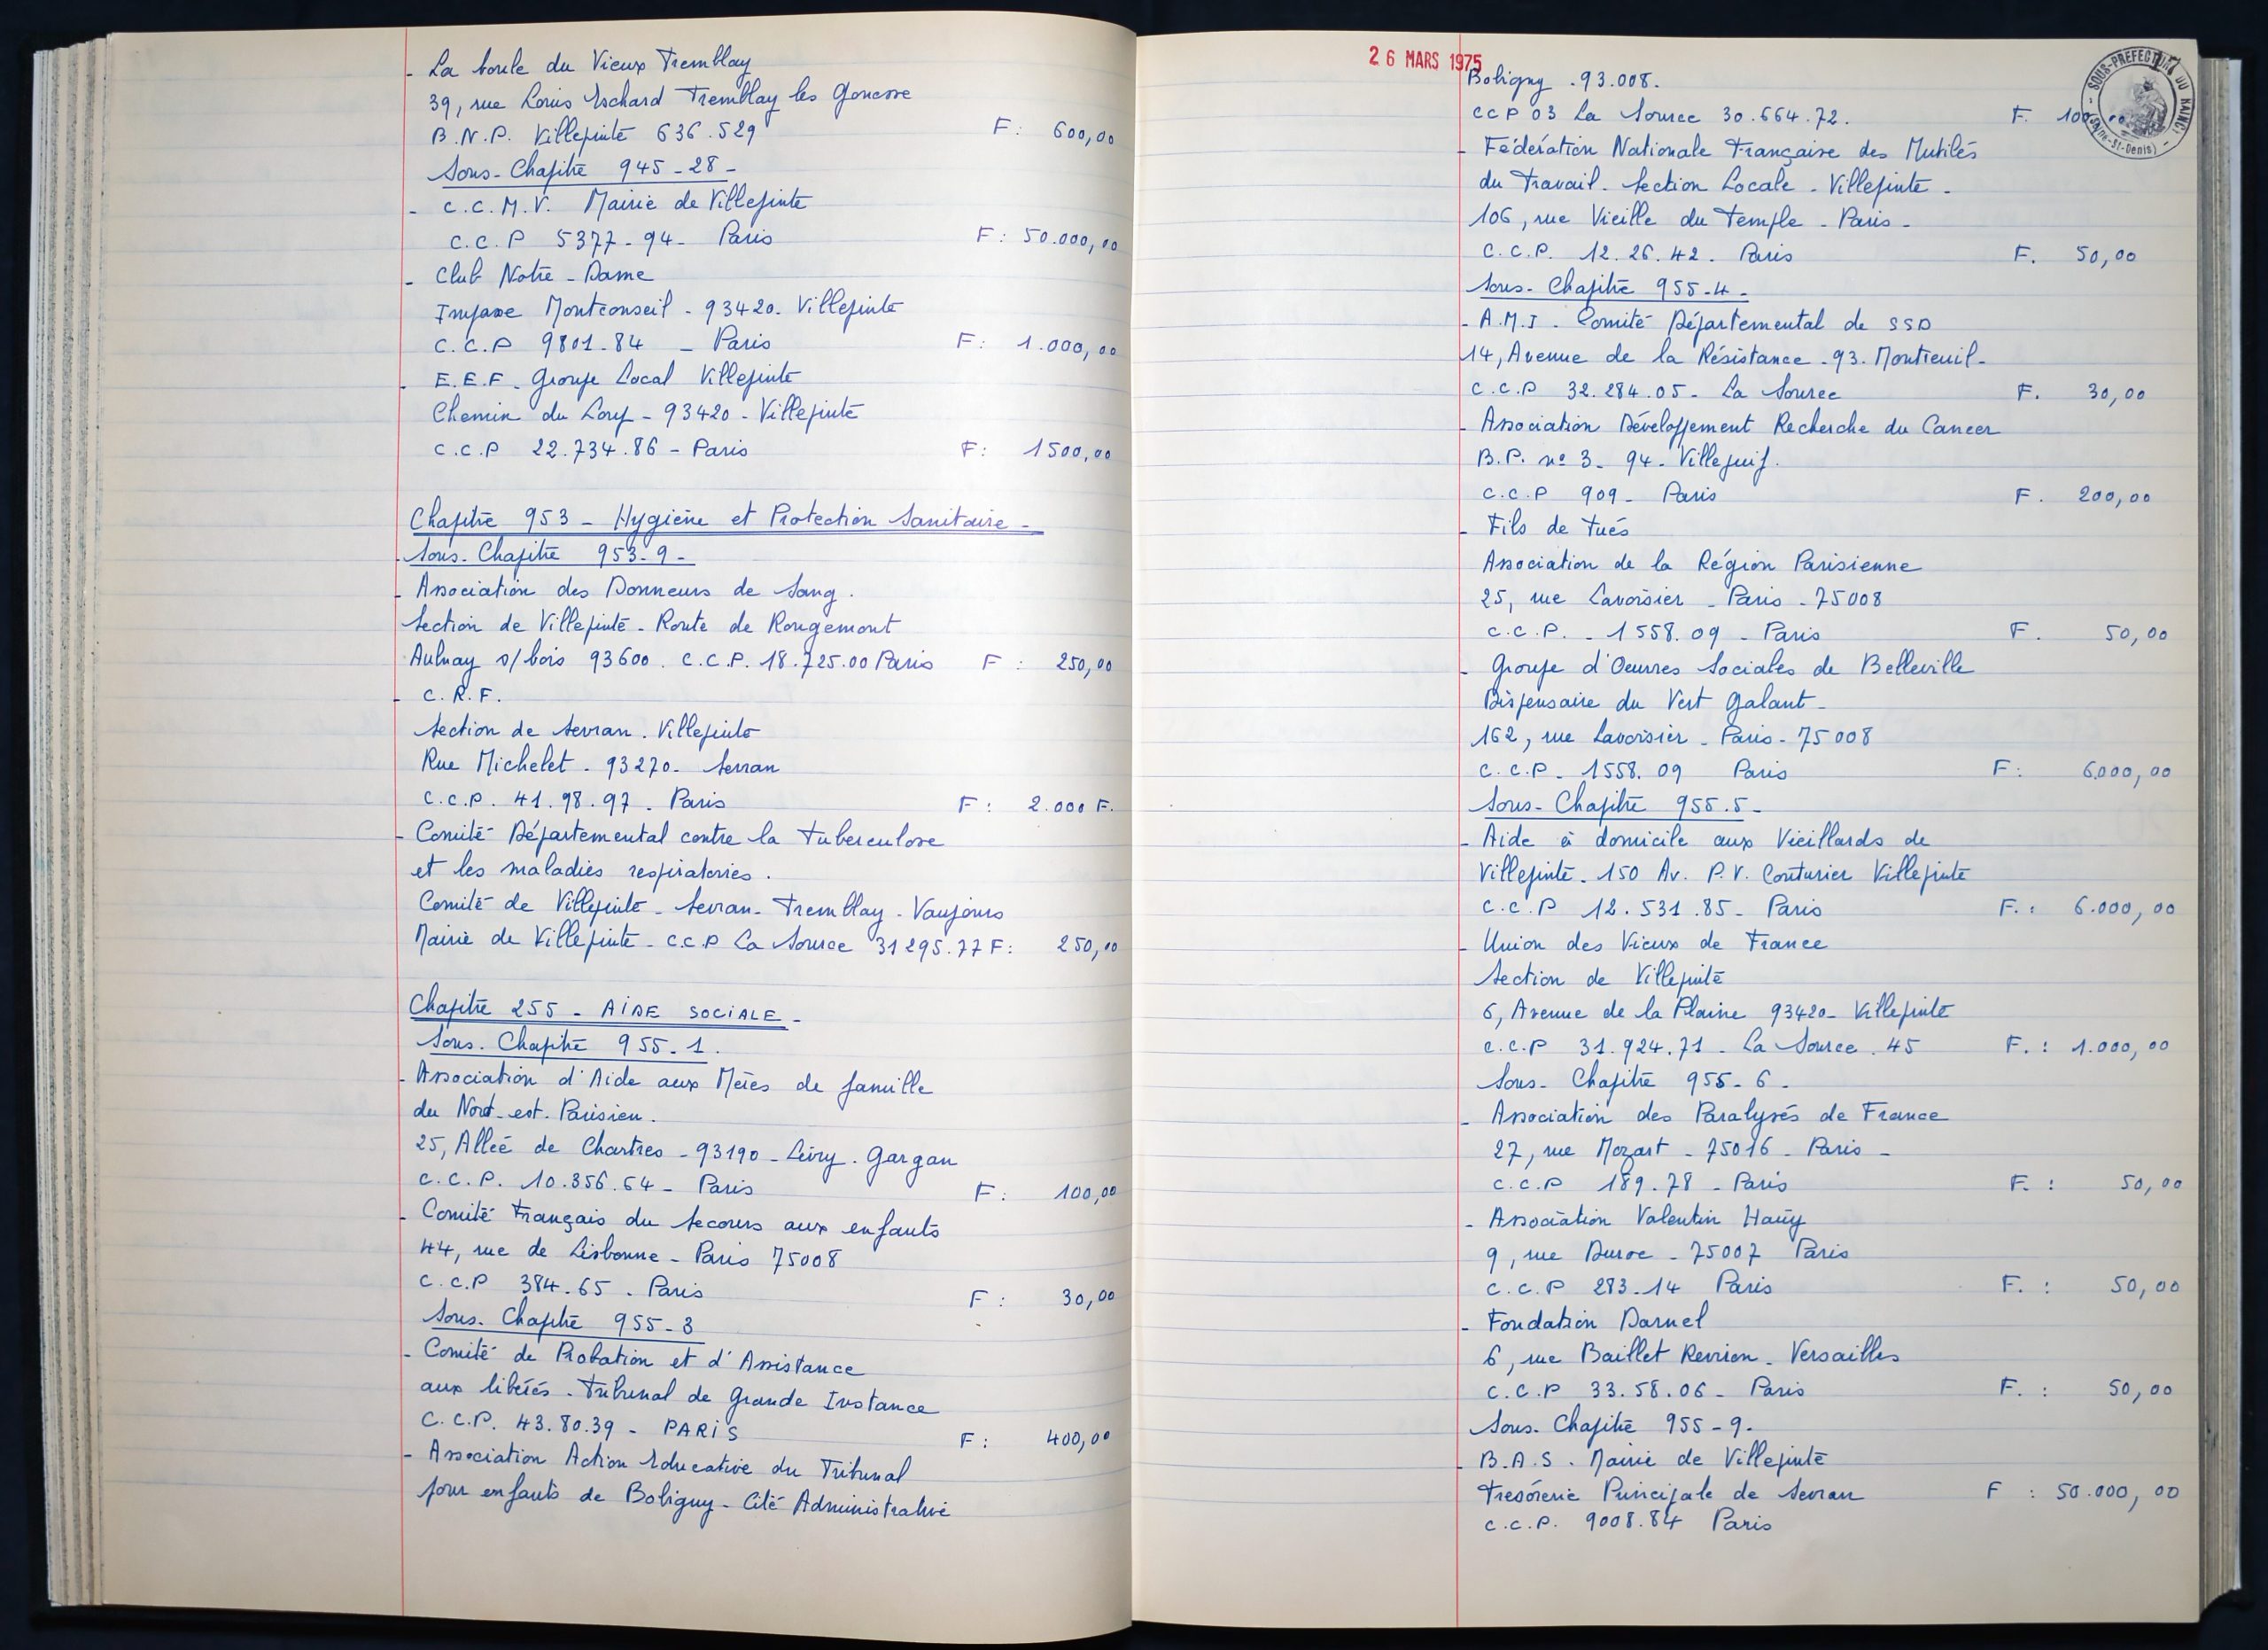 - La boule du Vieux Tremblay
39, rue Louis Eschard Tremblay les Gonesse
B.N.P. Villepinte 636.529 F: 600,00
Sous-Chapitre 945-28-
- C.C.M.V. Mairie de Villepinte
C.C.P 5377-94- Paris F: 50.000,00
- Club Notre-Dame
Impasse Montconseil - 93420. Villepinte
C.C.P 9801-84 - Paris F: 1.000,00
- E.E.F. Groupe Local Villepinte
Chemin du Loup - 93420 - Villepinte
C.C.P 22.734.86 - Paris F: 1500,00
Chapitre 953 - Hygiène et Protection Sanitaire -
Sous-Chapitre 953-9-
- Association des Donneurs de Sang.
Section de Villepinte - Route de Rougemont
Aulnay s/bois 93600. C.C.P. 18.725.00 Paris F: 250,00
- C.R.F.
Section de Sevran. Villepinte
Rue Michelet - 93270- Sevran
C.C.P. 41.98.97. Paris F: 2.000 F.
- Comité Départemental contre la tuberculose
et les maladies respiratoires.
Comité de Villepinte - Sevran - Tremblay - Vaujours
Mairie de Villepinte - C.C.P La Source 31295.77 F: 250,00
Chapitre 255 - AIDE SOCIALE -
Sous-Chapitre 955-1.
- Association d'Aide aux Mères de famille
du Nord-est-Parisien.
25, Allée de Chartres - 93190 - Livry-Gargan
C.C.P. 10.356.64 - Paris F: 100,00
- Comité Français du Secours aux enfants
44, rue de Lisbonne - Paris 75008
C.C.P 384.65. Paris F: 30,00
Sous-Chapitre 955-3
- Comité de Probation et d'Assistance
aux libérés - Tribunal de Grande Instance
C.C.P. 43.80.39 - PARIS F: 400,00
- Association Action Educative du Tribunal
pour enfants de Bobigny - Cité Administrative
26 MARS 1975
SOUS-PREFECTURE DU RAINCY
(Seine-St-Denis)
Bobigny - 93.008.
CCP 03 La Source 30.664.72. F. 100,00
- Fédération Nationale Française des Mutilés
du Travail - Section Locale - Villepinte -
106, rue Vieille du Temple - Paris -
C.C.P. 12.26.42. Paris F. 50,00
Sous-Chapitre 955-4-
- A.M.I. Comité Départemental de SSD
14, Avenue de la Résistance - 93. Montreuil -
C.C.P 32.284.05 - La Source F. 30,00
- Association Développement Recherche du Cancer
B.P. n° 3 - 94 - Villejuif.
C.C.P 909 - Paris F. 200,00
- Fils de Tués
Association de la Région Parisienne
25, rue Lavoisier - Paris - 75008
C.C.P. - 1558.09 - Paris F. 50,00
- Groupe d'Oeuvres Sociales de Belleville
Dispensaire du Vert Galant -
162, rue Lavoisier - Paris - 75008
C.C.P - 1558.09 Paris F: 6.000,00
Sous-Chapitre 955.5-
- Aide à domicile aux Vieillards de
Villepinte - 150 Av. P.V. Couturier Villepinte
C.C.P 12.531.85 - Paris F.: 6.000,00
- Union des Vieux de France
Section de Villepinte
6, Avenue de la Plaine 93420 - Villepinte
C.C.P 31.924.71 - La Source. 45 F.: 1.000,00
Sous-Chapitre 955-6-
- Association des Paralysés de France
27, rue Mozart - 75016 - Paris -
C.C.P 189.78 - Paris F.: 50,00
- Association Valentin Haüy
9, rue Duroc - 75007 Paris
C.C.P 283.14 Paris F.: 50,00
- Fondation Darnel
6, rue Baillet Reviron - Versailles
C.C.P 33.58.06 - Paris F.: 50,00
Sous-Chapitre 955-9.
- B.A.S. Mairie de Villepinte
Trésorerie Principale de Sevran F: 50.000,00
C.C.P. 9008.84 Paris